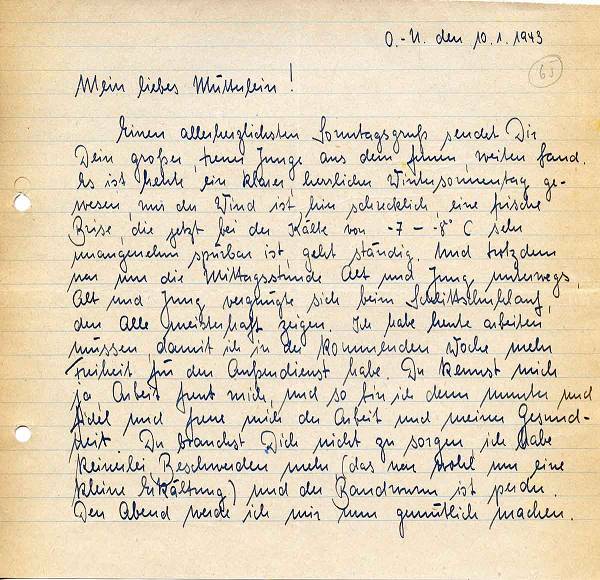 O.-U. den 10.1.1943
65
Mein liebes Mütterlein!
Einen allerherzlichsten Sonntagsgruß sendet Dir
Dein großer, treuer Junge aus dem fernen, weiten Land.
Es ist heute ein klarer, herrlicher Wintersonnentag ge-
wesen, nur der Wind ist hier schrecklich, eine frische
Brise, die jetzt bei der Kälte von -7 – -8° C sehr
unangenehm spürbar ist, geht ständig. Und trotzdem
war um die Mittagsstunde Alt und Jung unterwegs,
Alt und Jung vergnügte sich beim Schlittschuhlauf,
den Alle meisterhaft zeigen. Ich habe heute arbeiten
müssen, damit ich in der kommenden Woche mehr
Freiheit für den Außendienst habe. Du kennst mich
ja, Arbeit freut mich, und so bin ich denn munter und
fidel und freue mich der Arbeit und meiner Gesund-
heit. Du brauchst Dich nicht zu sorgen, ich habe
keinerlei Beschwerden mehr (das war wohl nur eine
kleine Erkältung) und der Bandwurm ist perdu.
Den Abend werde ich mir nun gemütlich machen.